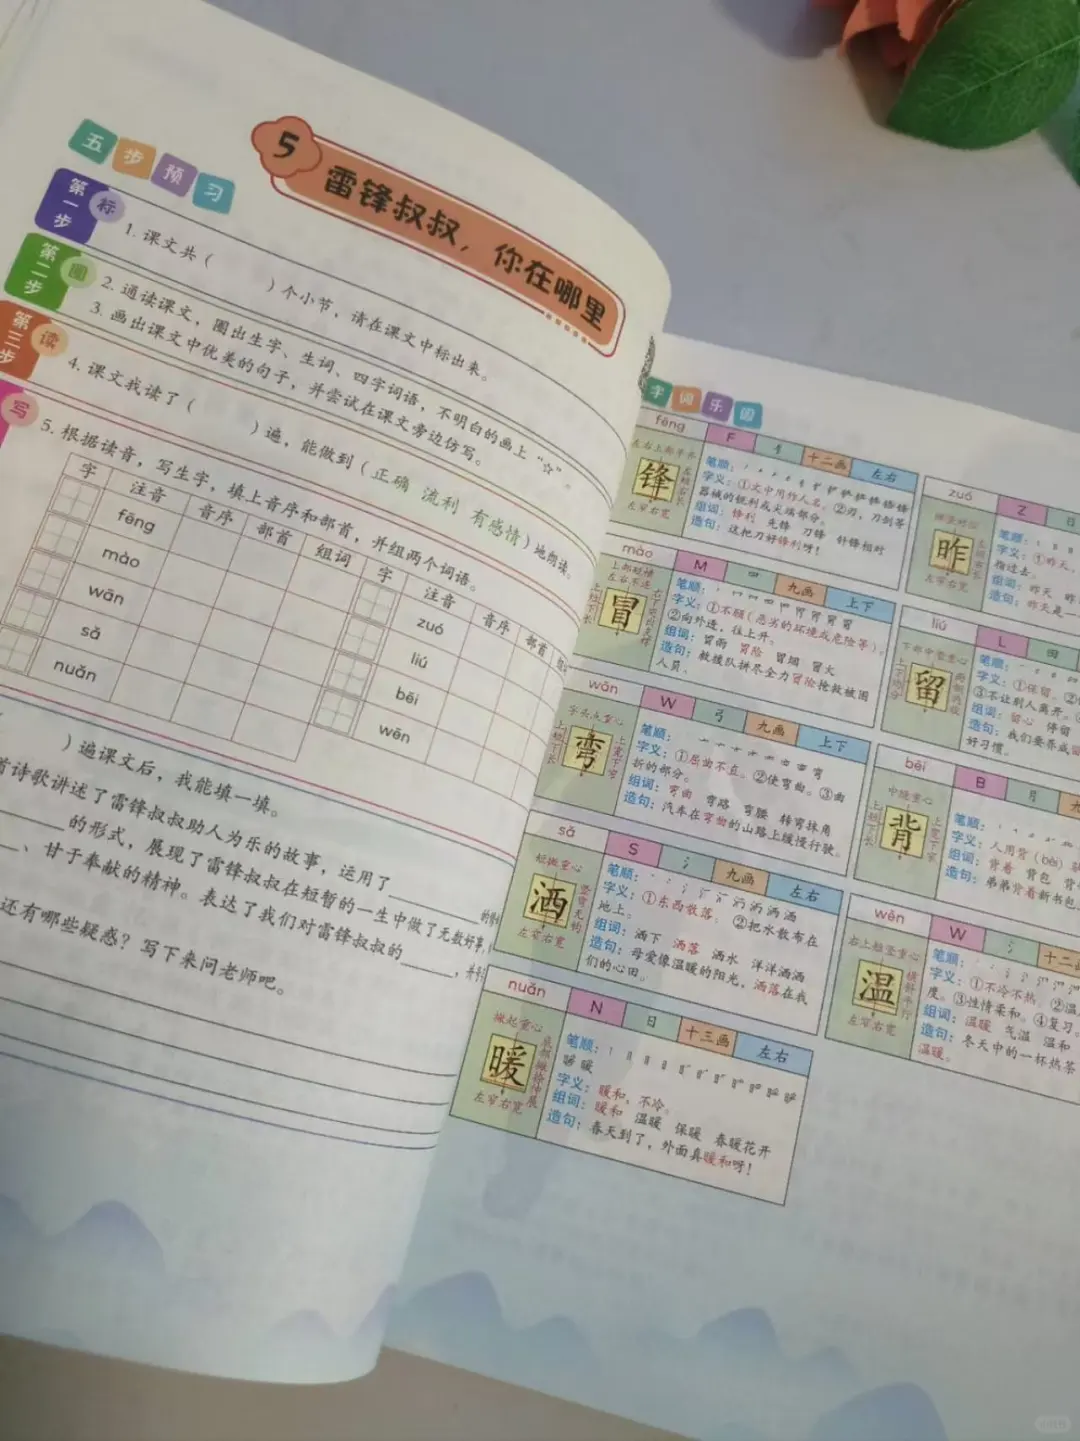 五步预习
5 雷锋叔叔，你在哪里
第一步 标
1. 课文共（ ）个小节，请在课文中标出来。
第二步 圈
2. 通读课文，圈出生字、生词、四字词语，不明白的画上“☆”。
3. 画出课文中优美的句子，并尝试在课文旁边仿写。
第三步 读
4. 课文我读了（ ）遍，能做到（正确 流利 有感情）地朗读。
写
5. 根据读音，写生字，填上音序和部首，并组两个词语。
字 注音 音序 部首 组词 字 注音 音序 部首
fēng zuó
mào liú
wān bēi
sǎ wēn
nuǎn
）遍课文后，我能填一填。
首诗歌讲述了雷锋叔叔助人为乐的故事，运用了
的形式，展现了雷锋叔叔在短暂的一生中做了无数好事，
、甘于奉献的精神。表达了我们对雷锋叔叔的
还有哪些疑惑？写下来问老师吧。
字词乐园
fēng F 钅 十二画 左右
锋
左窄右宽
笔顺：
字义：①文中用作人名。②刃，刀剑等
器械的锐利或尖端部分。
组词：锋利 先锋 刀锋 针锋相对
造句：这把刀好锋利呀！
mào M 九画 上下
冒
上短下长
笔顺：
字义：①不顾（恶劣的环境或危险等）。
②向外透，往上升。
组词：冒雨 冒险 冒烟 冒火
造句：救援队拼尽全力冒险抢救被困
人员。
wān W 弓 九画 上下
弯
上短下长
上宽下窄
笔顺：
字义：①屈曲不直。②使弯曲。③曲
折的部分。
组词：弯曲 弯路 弯腰 转弯抹角
造句：汽车在弯曲的山路上缓慢行驶。
sǎ S 氵 九画 左右
洒
短撇重心
左窄右宽
笔顺：
字义：①东西散落。②把水散布在
地上。
组词：洒下 洒落 洒水 洋洋洒洒
造句：母爱像温暖的阳光，洒落在我
们的心田。
nuǎn N 日 十三画 左右
暖
撇起重心
左窄右宽
笔顺：
字义：暖和，不冷。
组词：暖和 温暖 保暖 春暖花开
造句：春天到了，外面真暖和呀！
zuó Z 日
昨
左窄右宽
笔顺：
字义：①昨天。
指过去。
组词：昨天
造句：昨天是
liú L 田
留
笔顺：
字义：①保留。
③不让别人离开。
组词：留心 停留
造句：我们要养成留
好习惯。
bēi B 月
背
上短下长
上宽下窄
笔顺：
字义：人用背（bèi）
组词：背着 背包
造句：弟弟背着新书包
wēn W 氵 十二
温
左窄右宽
笔顺：
字义：①不冷不热。②温
度。③性情柔和。④复习。
组词：温暖 气温 温和
造句：冬天中的一杯热茶
温暖。